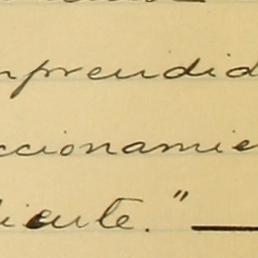 mprendid
ccionamie
diente."